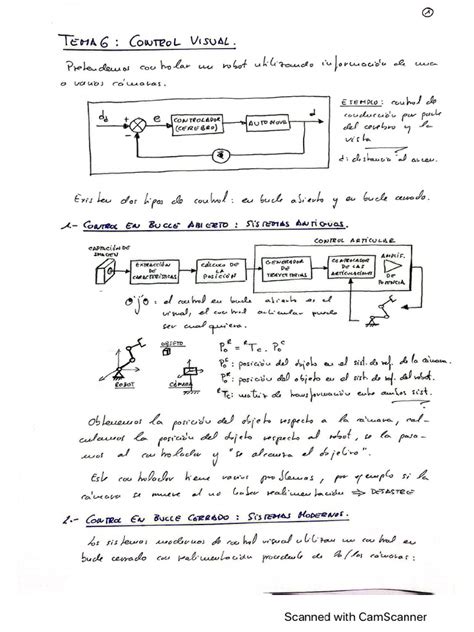 1
TEMA 6: CONTROL VISUAL.
Pretendemos controlar un robot utilizando información de una
o varias cámaras.
dd
+
-
e
CONTROLADOR
(CEREBRO)
AUTOMOVIL
d
EJEMPLO: control de
conducción por parte
del cerebro y la
vista
d: distancia al arcen.
Existen dos tipos de control: en bucle abierto y en bucle cerrado.
1.- CONTROL EN BUCLE ABIERTO: SISTEMAS ANTIGUOS.
CONTROL ARTICULAR
CAPTACIÓN DE
IMAGEN
EXTRACCIÓN
DE
CARACTERÍSTICAS
CÁLCULO DE
LA
POSICIÓN
GENERADOR
DE
TRAYECTORIAS
CONTROLADOR
DE LAS
ARTICULACIONES
AMPLIF.
DE
POTENCIA
Ojo: el control en bucle abierto es el
visual, el control articular puede
ser cualquiera.
OBJETO
ROBOT
CÁMARA
P₀ᴿ = ᴿTc · P₀ᶜ
P₀ᶜ: posición del objeto en el sist. de ref. de la cámara.
P₀ᴿ: posición del objeto en el sist. de ref. del robot.
ᴿTc: matriz de transformación entre ambos sist.
Obtenemos la posición del objeto respecto a la cámara, cal-
culamos la posición del objeto respecto al robot, se la pasa-
mos al controlador y "se alcanza el objetivo".
Este controlador tiene varios problemas, por ejemplo si la
cámara se mueve al no haber realimentación ⇒ DESASTRE
2.- CONTROL EN BUCLE CERRADO: SISTEMAS MODERNOS.
Los sistemas modernos de control visual utilizan un control en
bucle cerrado con realimentación procedente de la/las cámaras:
Scanned with CamScanner